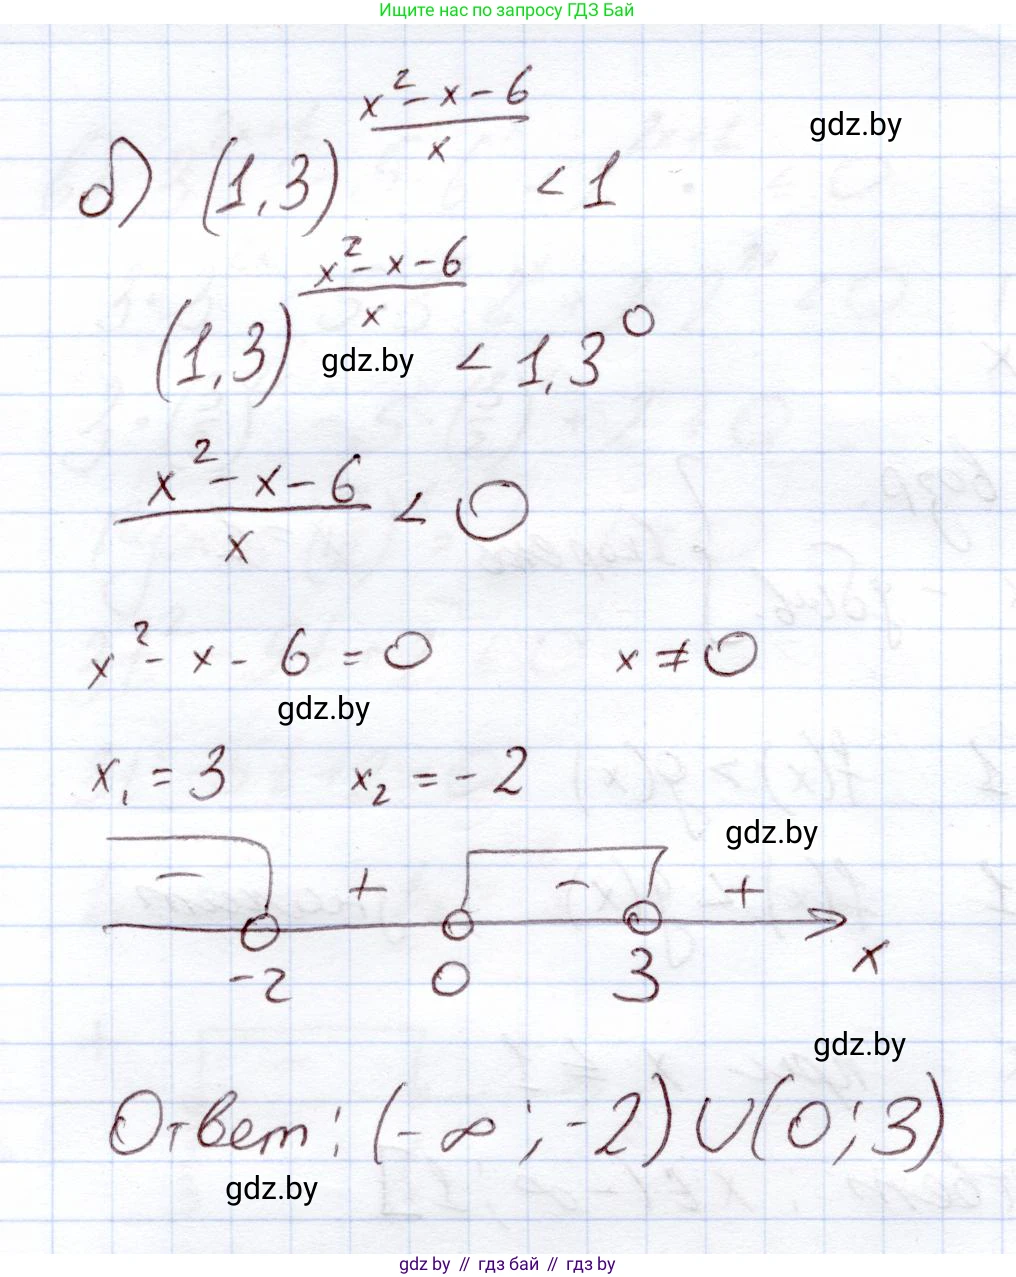 Ищите нас по запросу ГДЗ Бай
gdz.by
б) (1,3)^((x²-x-6)/x) < 1
(1,3)^((x²-x-6)/x) < 1,3⁰
gdz.by
(x²-x-6)/x < 0
x²-x-6=0 x≠0
gdz.by
x₁=3 x₂=-2
gdz.by
- + - +
-2 0 3 x
gdz.by
Ответ: (-∞;-2)∪(0;3)
gdz.by
gdz.by // гдз бай // гдз by